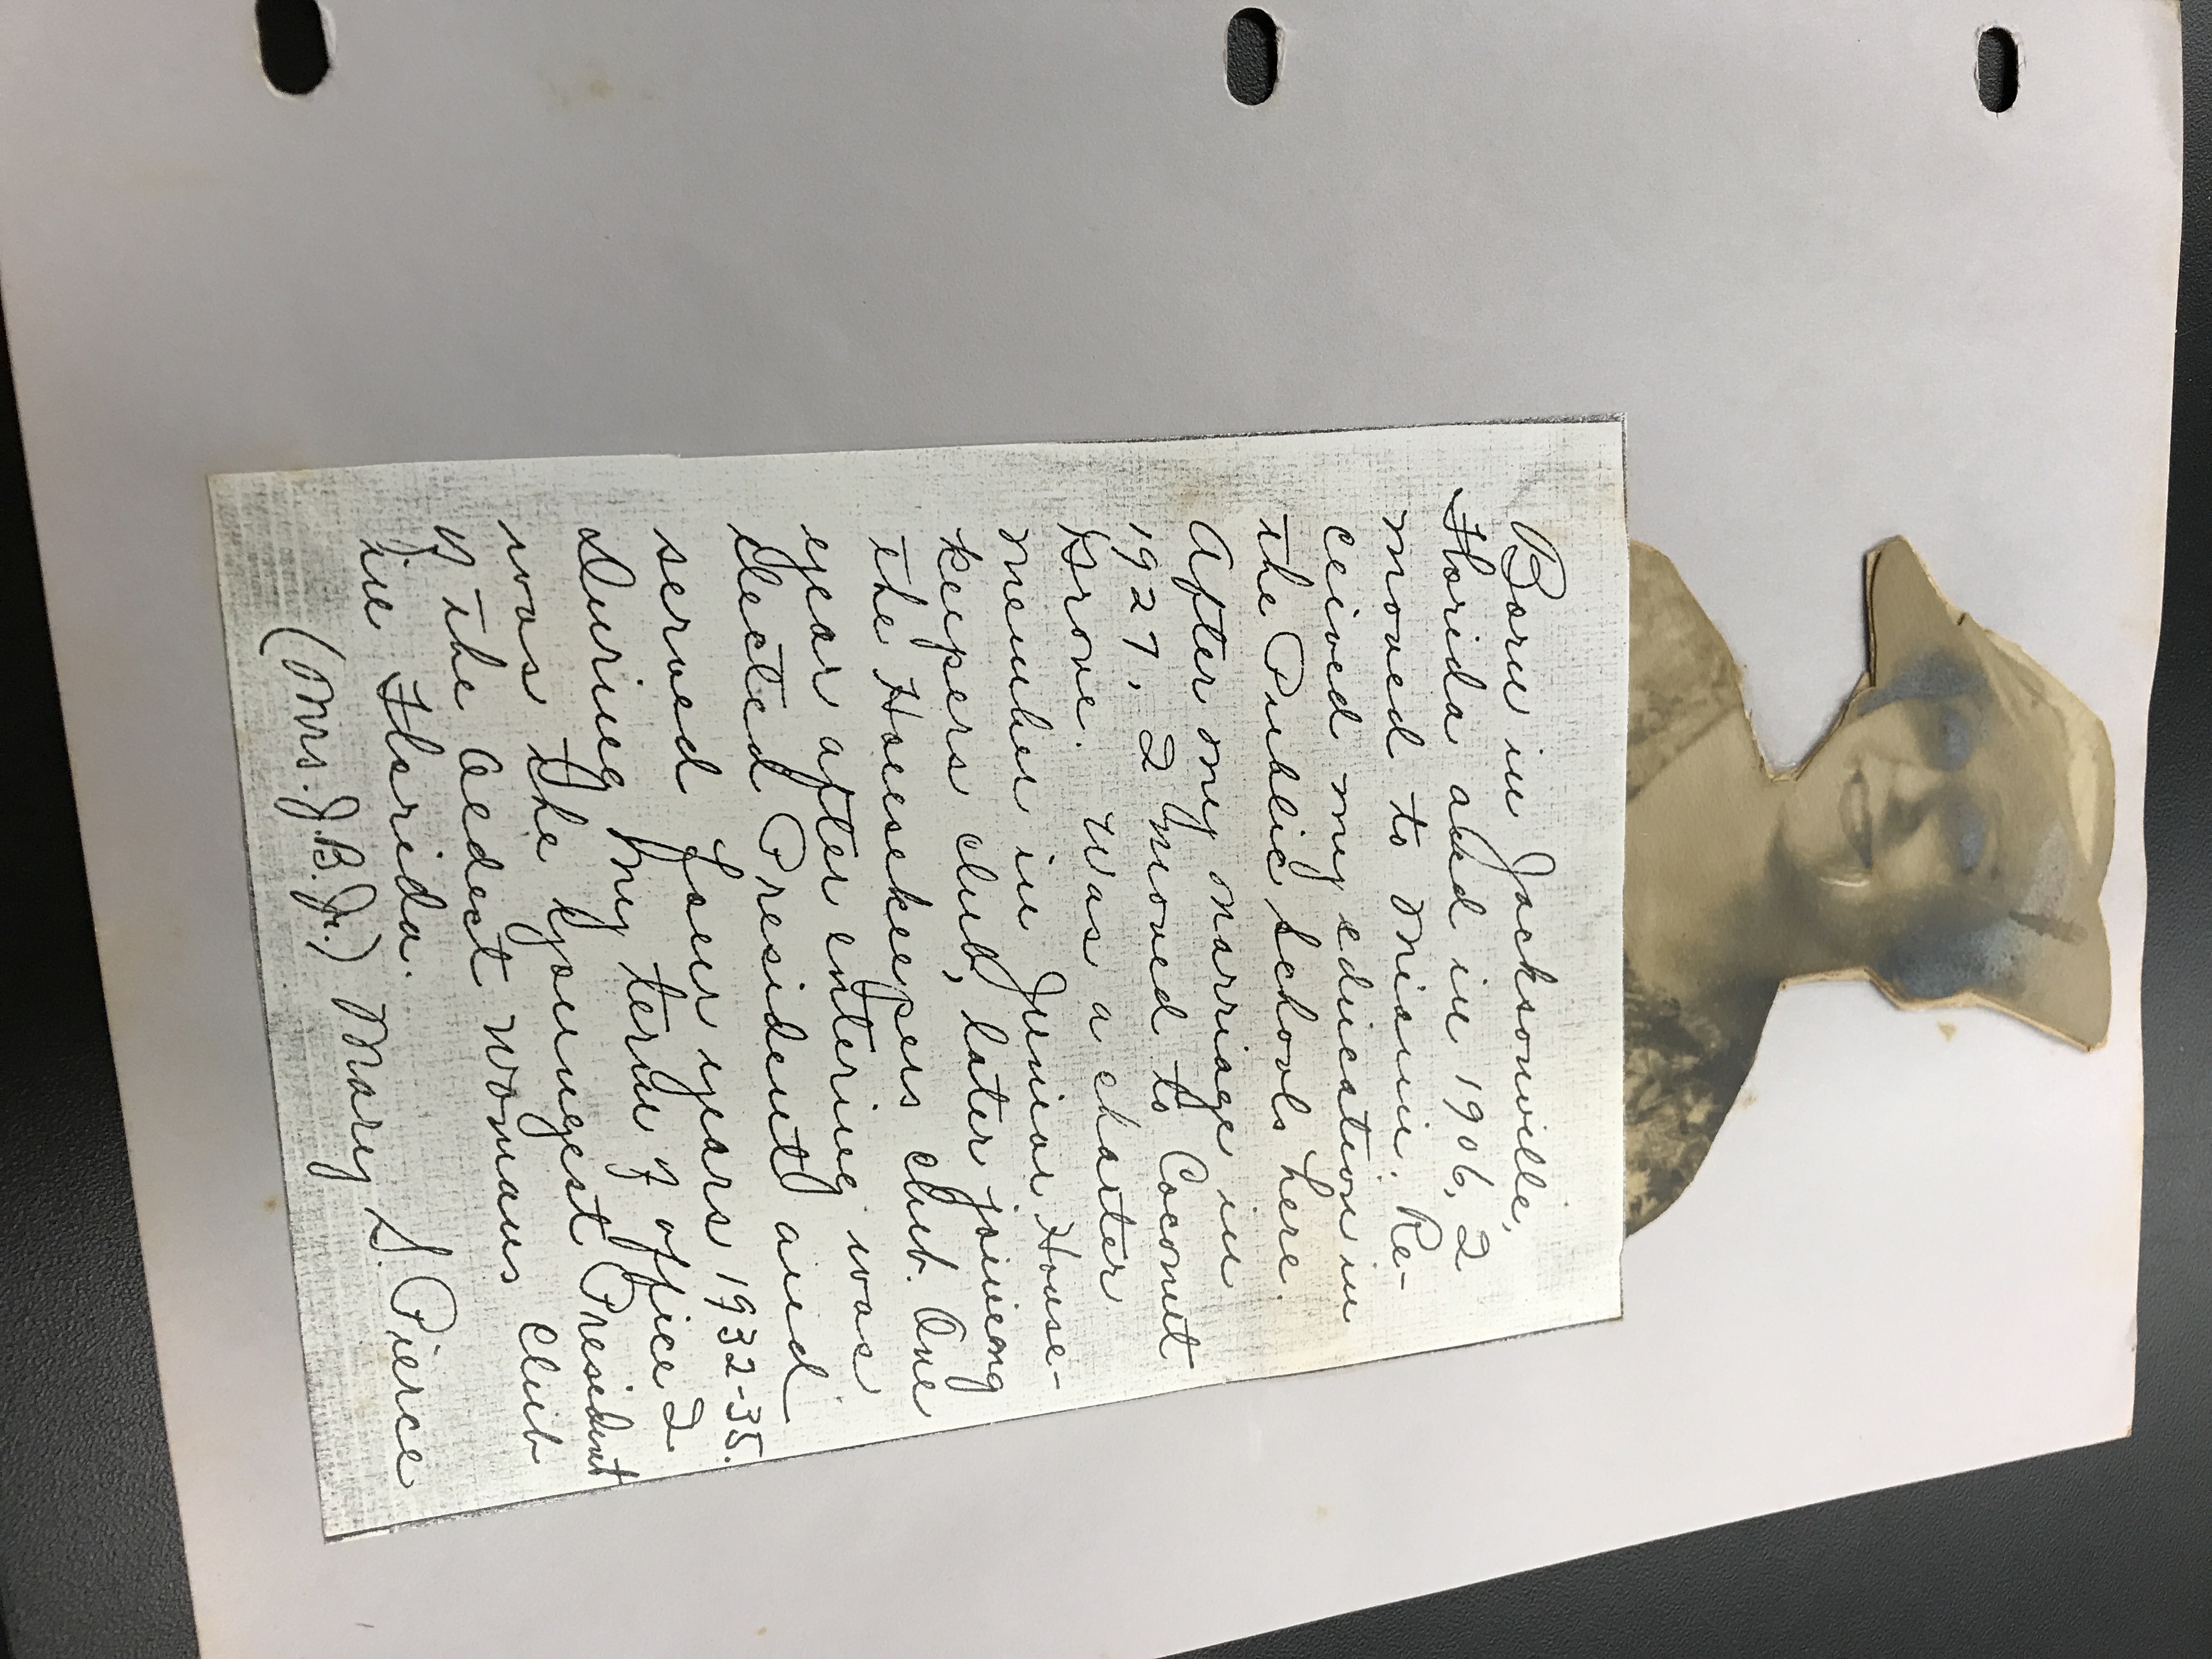 Born in Jacksonville,
Florida and in 1906, I
moved to Miami. Re-
ceived my education in
the Public Schools here.
After my marriage in
1927, I moved to Coconut
Grove. Was a charter
member in Junior House-
keepers club, later joining
the Housekeepers club. One
year after entering was
elected President and
served four years 1932-35.
During my term of office I
was the youngest President
of the Oldest Womans Club
in Florida.
(Mrs. J.B. Jr.) Mary S. Pierce